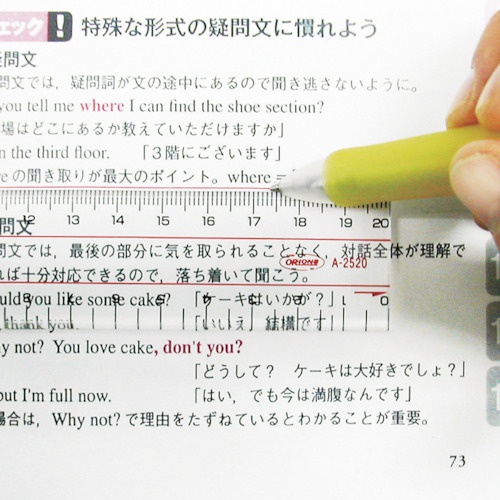 ェック ! 特殊な形式の疑問文に慣れよう
疑問文
問文では，疑問詞が文の途中にあるので聞き逃さないように。
you tell me where I can find the shoe section?
場はどこにあるか教えていただけますか」
n the third floor. 「３階にございます」
reの聞き取りが最大のポイント。where =
12 13 14 15 16 17 18 19 20
問文
問文では，最後の部分に気を取られることなく，対話全体が理解で
れば十分対応できるので，落ち着いて聞こう。
ORIONS A-2520
ould you like some cake? 「ケーキはいかが？」
8 7 6 5 4 3 2 1 0
thank you. 「いいえ，結構です」
y not? You love cake, don't you?
「どうして？ ケーキは大好きでしょ？」
but I'm full now. 「はい，でも今は満腹なんです」
場合は，Why not? で理由をたずねているとわかることが重要。
73